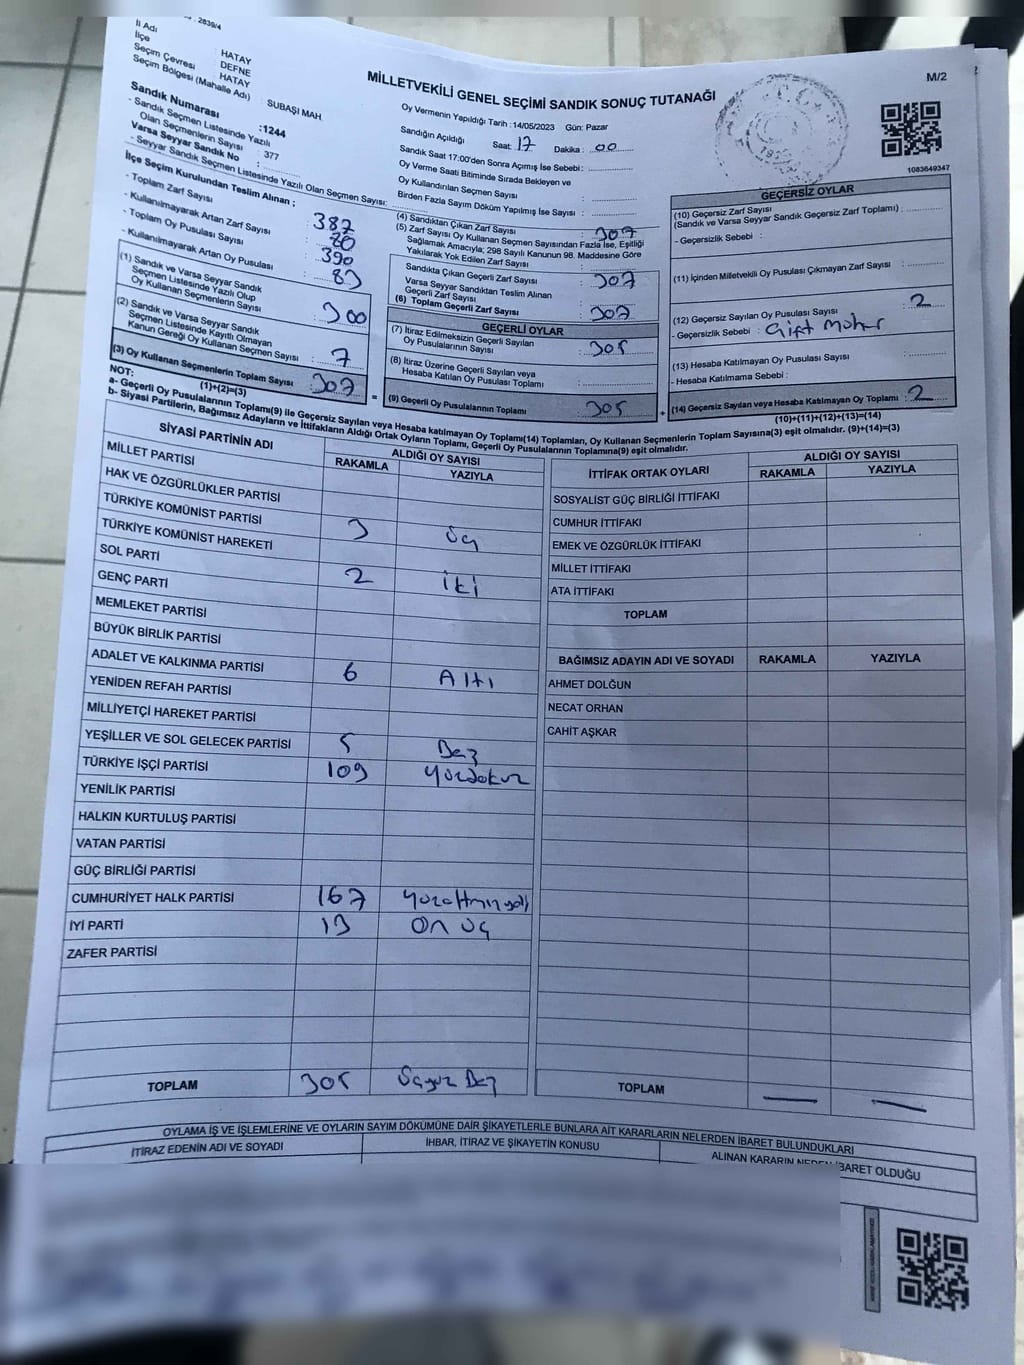 : 2839/4
İl Adı : HATAY
İlçe : DEFNE
Seçim Çevresi : HATAY
Seçim Bölgesi (Mahalle Adı) : SUBAŞI MAH.
Sandık Numarası :1244
- Sandık Seçmen Listesinde Yazılı
Olan Seçmenlerin Sayısı : 377
Varsa Seyyar Sandık No :
- Seyyar Sandık Seçmen Listesinde Yazılı Olan Seçmen Sayısı:
MİLLETVEKİLİ GENEL SEÇİMİ SANDIK SONUÇ TUTANAĞI
M/2
Oy Vermenin Yapıldığı Tarih : 14/05/2023 Gün: Pazar
Sandığın Açıldığı Saat: 17 Dakika : 00
Sandık Saat 17:00'den Sonra Açılmış İse Sebebi :
Oy Verme Saati Bitiminde Sırada Bekleyen ve
Oy Kullandırılan Seçmen Sayısı :
Birden Fazla Sayım Döküm Yapılmış İse Sayısı :
1083649347
İlçe Seçim Kurulundan Teslim Alınan ;
- Toplam Zarf Sayısı : 387
- Kullanılmayarak Artan Zarf Sayısı : 80
- Toplam Oy Pusulası Sayısı : 390
- Kullanılmayarak Artan Oy Pusulası : 83
(1) Sandık ve Varsa Seyyar Sandık
Seçmen Listesinde Yazılı Olup
Oy Kullanan Seçmenlerin Sayısı : 300
(2) Sandık ve Varsa Seyyar Sandık
Seçmen Listesinde Kayıtlı Olmayan
Kanun Gereği Oy Kullanan Seçmen Sayısı : 7
(3) Oy Kullanan Seçmenlerin Toplam Sayısı : 307
(1)+(2)=(3)
(4) Sandıktan Çıkan Zarf Sayısı : 307
(5) Zarf Sayısı Oy Kullanan Seçmen Sayısından Fazla İse, Eşitliği
Sağlamak Amacıyla; 298 Sayılı Kanunun 98. Maddesine Göre
Yakılarak Yok Edilen Zarf Sayısı :
Sandıkta Çıkan Geçerli Zarf Sayısı : 307
Varsa Seyyar Sandıktan Teslim Alınan
Geçerli Zarf Sayısı :
(6) Toplam Geçerli Zarf Sayısı : 307
GEÇERLİ OYLAR
(7) İtiraz Edilmeksizin Geçerli Sayılan
Oy Pusulalarının Sayısı : 305
(8) İtiraz Üzerine Geçerli Sayılan veya
Hesaba Katılan Oy Pusulası Toplamı :
= (9) Geçerli Oy Pusulalarının Toplamı : 305 +
GEÇERSİZ OYLAR
(10) Geçersiz Zarf Sayısı
(Sandık ve Varsa Seyyar Sandık Geçersiz Zarf Toplamı) :
- Geçersizlik Sebebi :
(11) İçinden Milletvekili Oy Pusulası Çıkmayan Zarf Sayısı :
(12) Geçersiz Sayılan Oy Pusulası Sayısı : 2
- Geçersizlik Sebebi : Çift Mühür
(13) Hesaba Katılmayan Oy Pusulası Sayısı :
- Hesaba Katılmama Sebebi :
(14) Geçersiz Sayılan veya Hesaba Katılmayan Oy Toplamı : 2
(10)+(11)+(12)+(13)=(14)
NOT:
a- Geçerli Oy Pusulalarının Toplamı(9) ile Geçersiz Sayılan veya Hesaba katılmayan Oy Toplamı(14) Toplamları, Oy Kullanan Seçmenlerin Toplam Sayısına(3) eşit olmalıdır. (9)+(14)=(3)
b- Siyasi Partilerin, Bağımsız Adayların ve İttifakların Aldığı Ortak Oyların Toplamı, Geçerli Oy Pusulalarının Toplamına(9) eşit olmalıdır.
SİYASİ PARTİNİN ADI ALDIĞI OY SAYISI
RAKAMLA YAZIYLA
MİLLET PARTİSİ
HAK VE ÖZGÜRLÜKLER PARTİSİ
TÜRKİYE KOMÜNİST PARTİSİ
TÜRKİYE KOMÜNİST HAREKETİ 3 üç
SOL PARTİ
GENÇ PARTİ 2 iki
MEMLEKET PARTİSİ
BÜYÜK BİRLİK PARTİSİ
ADALET VE KALKINMA PARTİSİ 6 Altı
YENİDEN REFAH PARTİSİ
MİLLİYETÇİ HAREKET PARTİSİ
YEŞİLLER VE SOL GELECEK PARTİSİ 5 Beş
TÜRKİYE İŞÇİ PARTİSİ 109 Yüzdokuz
YENİLİK PARTİSİ
HALKIN KURTULUŞ PARTİSİ
VATAN PARTİSİ
GÜÇ BİRLİĞİ PARTİSİ
CUMHURİYET HALK PARTİSİ 167 Yüzaltmışyedi
İYİ PARTİ 13 On üç
ZAFER PARTİSİ
TOPLAM 305 Üçyüz Beş
İTTİFAK ORTAK OYLARI ALDIĞI OY SAYISI
RAKAMLA YAZIYLA
SOSYALİST GÜÇ BİRLİĞİ İTTİFAKI
CUMHUR İTTİFAKI
EMEK VE ÖZGÜRLÜK İTTİFAKI
MİLLET İTTİFAKI
ATA İTTİFAKI
TOPLAM
BAĞIMSIZ ADAYIN ADI VE SOYADI RAKAMLA YAZIYLA
AHMET DOLĞUN
NECAT ORHAN
CAHİT AŞKAR
TOPLAM
OYLAMA İŞ VE İŞLEMLERİNE VE OYLARIN SAYIM DÖKÜMÜNE DAİR ŞİKAYETLERLE BUNLARA AİT KARARLARIN NELERDEN İBARET BULUNDUKLARI
İTİRAZ EDENİN ADI VE SOYADI İHBAR, İTİRAZ VE ŞİKAYETİN KONUSU ALINAN KARARIN NEDEN İBARET OLDUĞU